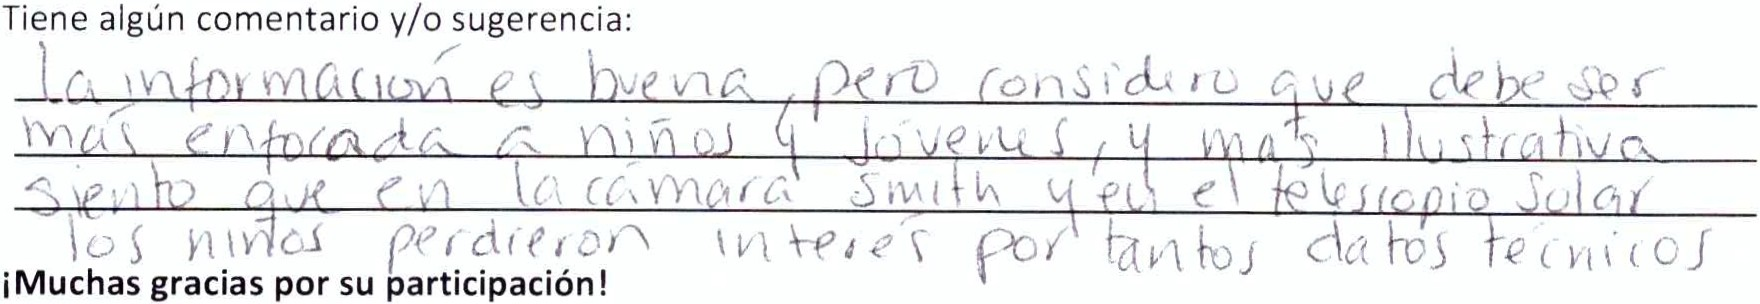 Tiene algún comentario y/o sugerencia:
La información es buena, pero considero que debe ser
más enfocada a niños y jóvenes, y más ilustrativa
siento que en la cámara Smith y en el telescopio solar
los niños perdieron interés por tantos datos técnicos
¡Muchas gracias por su participación!